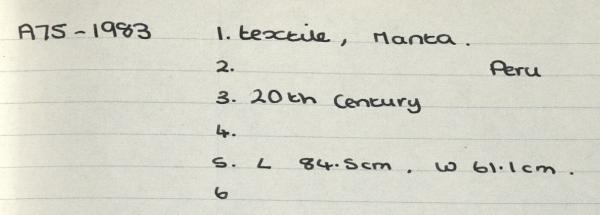 A75-1983 1. textile, Manta.
2. Peru
3. 20th Century
4.
5. L 84.5cm. W 61.1cm.
6